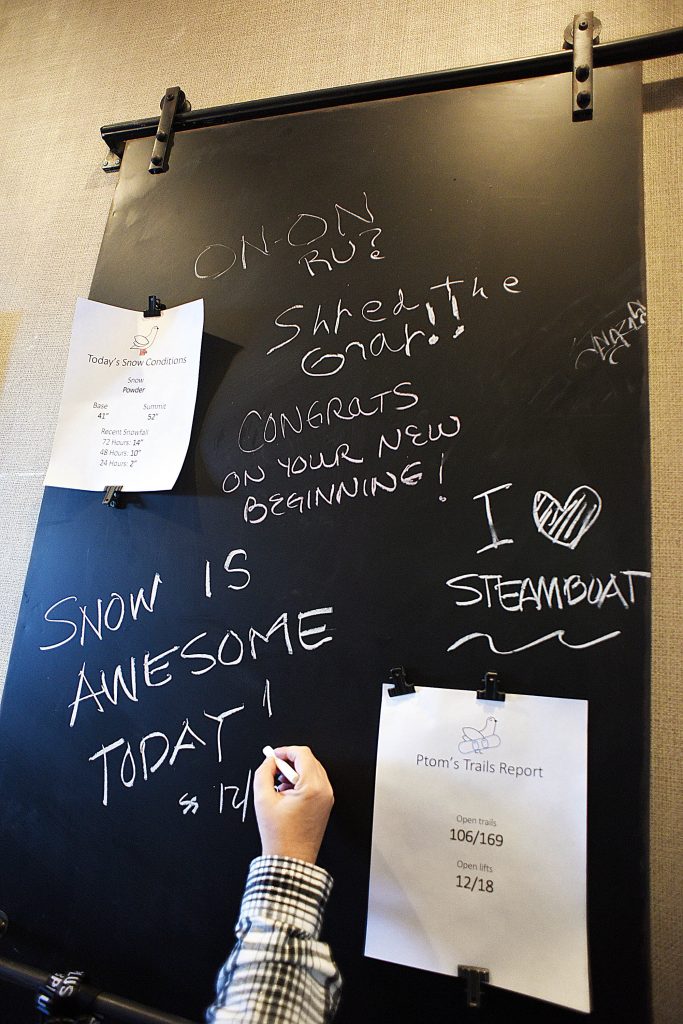 ON-ON
RU?
Shred The
Gnar!!
Today's Snow Conditions
Snow
Powder
Base Summit
41" 52"
Recent Snowfall
72 Hours: 14"
48 Hours: 10"
24 Hours: 2"
CONGRATS
ON YOUR NEW
BEGINNING!
I
STEAMBOAT
SNOW IS
AWESOME
TODAY!
12/
Ptom's Trails Report
Open trails
106/169
Open lifts
12/18